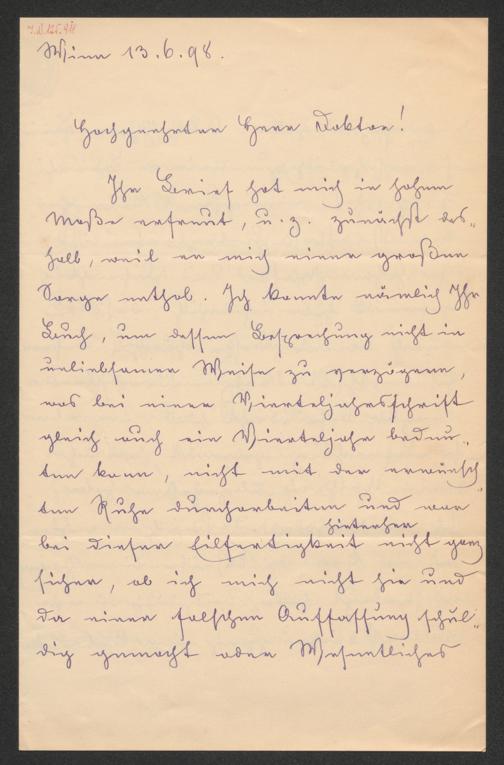 Wien 13.6.98.
Hochgeehrter Herr Doktor!
Ihr Brief hat mich in hohem
Maße erfreut, u. z. zunächst des-
halb, weil er mich einer großen
Sorge enthob. Ich konnte nämlich Ihr
Buch, um dessen Besprechung nicht in
unliebsamer Weise zu verzögern,
was bei einer Vierteljahrsschrift
gleich auch ein Vierteljahr bedeu-
ten kann, nicht mit der erwünsch-
ten Ruhe durcharbeiten und war
hinterher
bei dieser Eilfertigkeit nicht ganz
sicher, ob ich mich nicht hie und
da einer falschen Auffassung schul-
dig gemacht oder Wesentliches